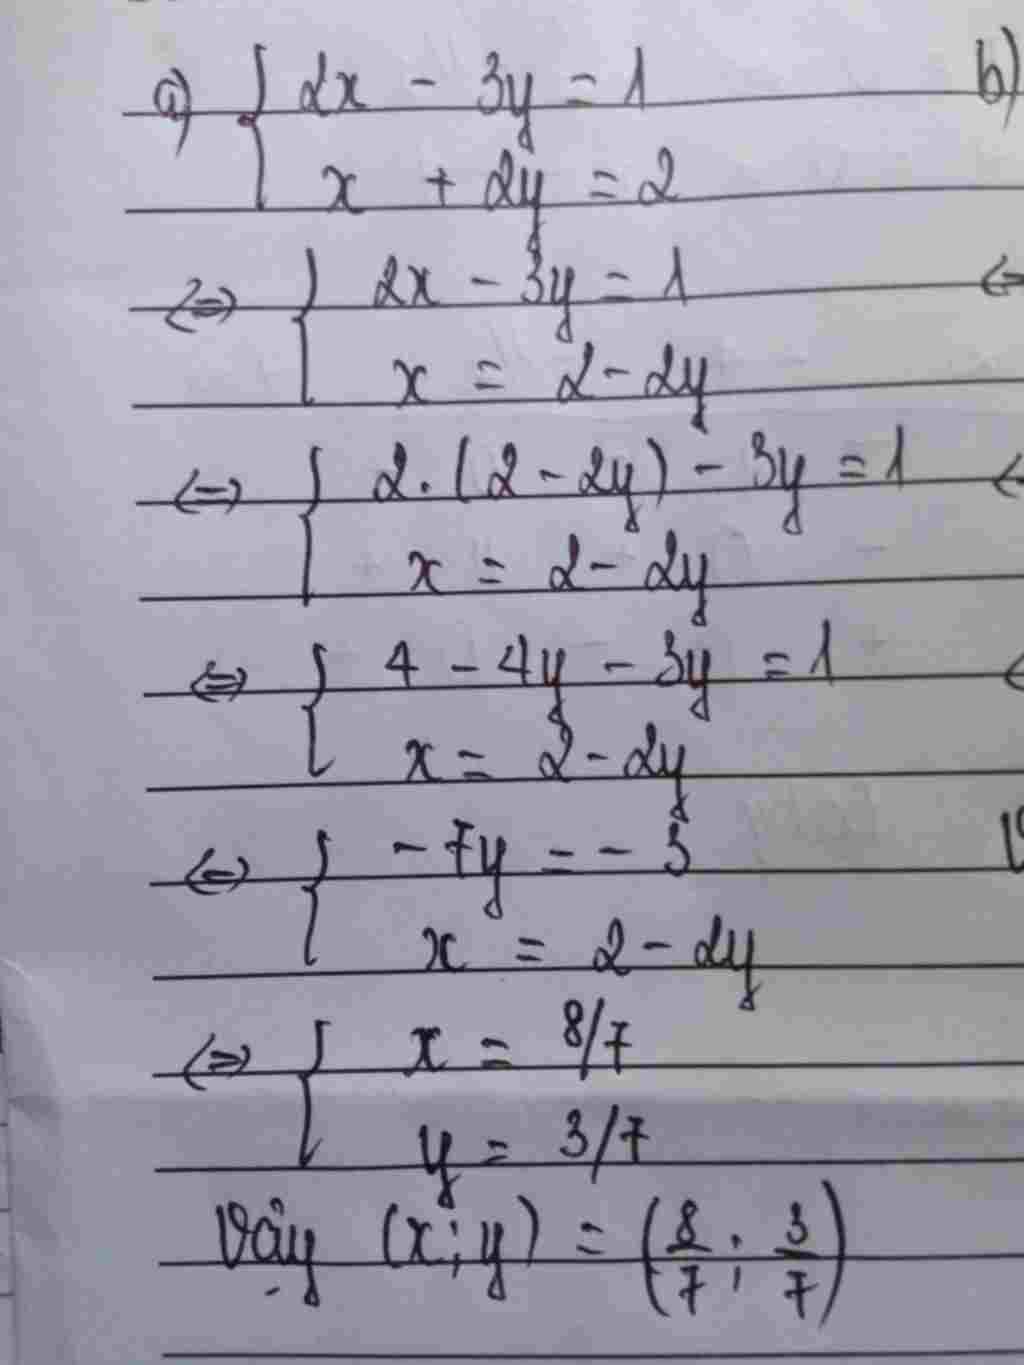 a) { 2x - 3y = 1 b)
x + 2y = 2
⇔ { 2x - 3y = 1 ⇔
x = 2 - 2y
⇔ { 2.(2 - 2y) - 3y = 1
x = 2 - 2y
⇔ { 4 - 4y - 3y = 1
x = 2 - 2y
⇔ { -7y = -3
x = 2 - 2y
⇔ { x = 8/7
y = 3/7
Vậy (x; y) = (8/7; 3/7)